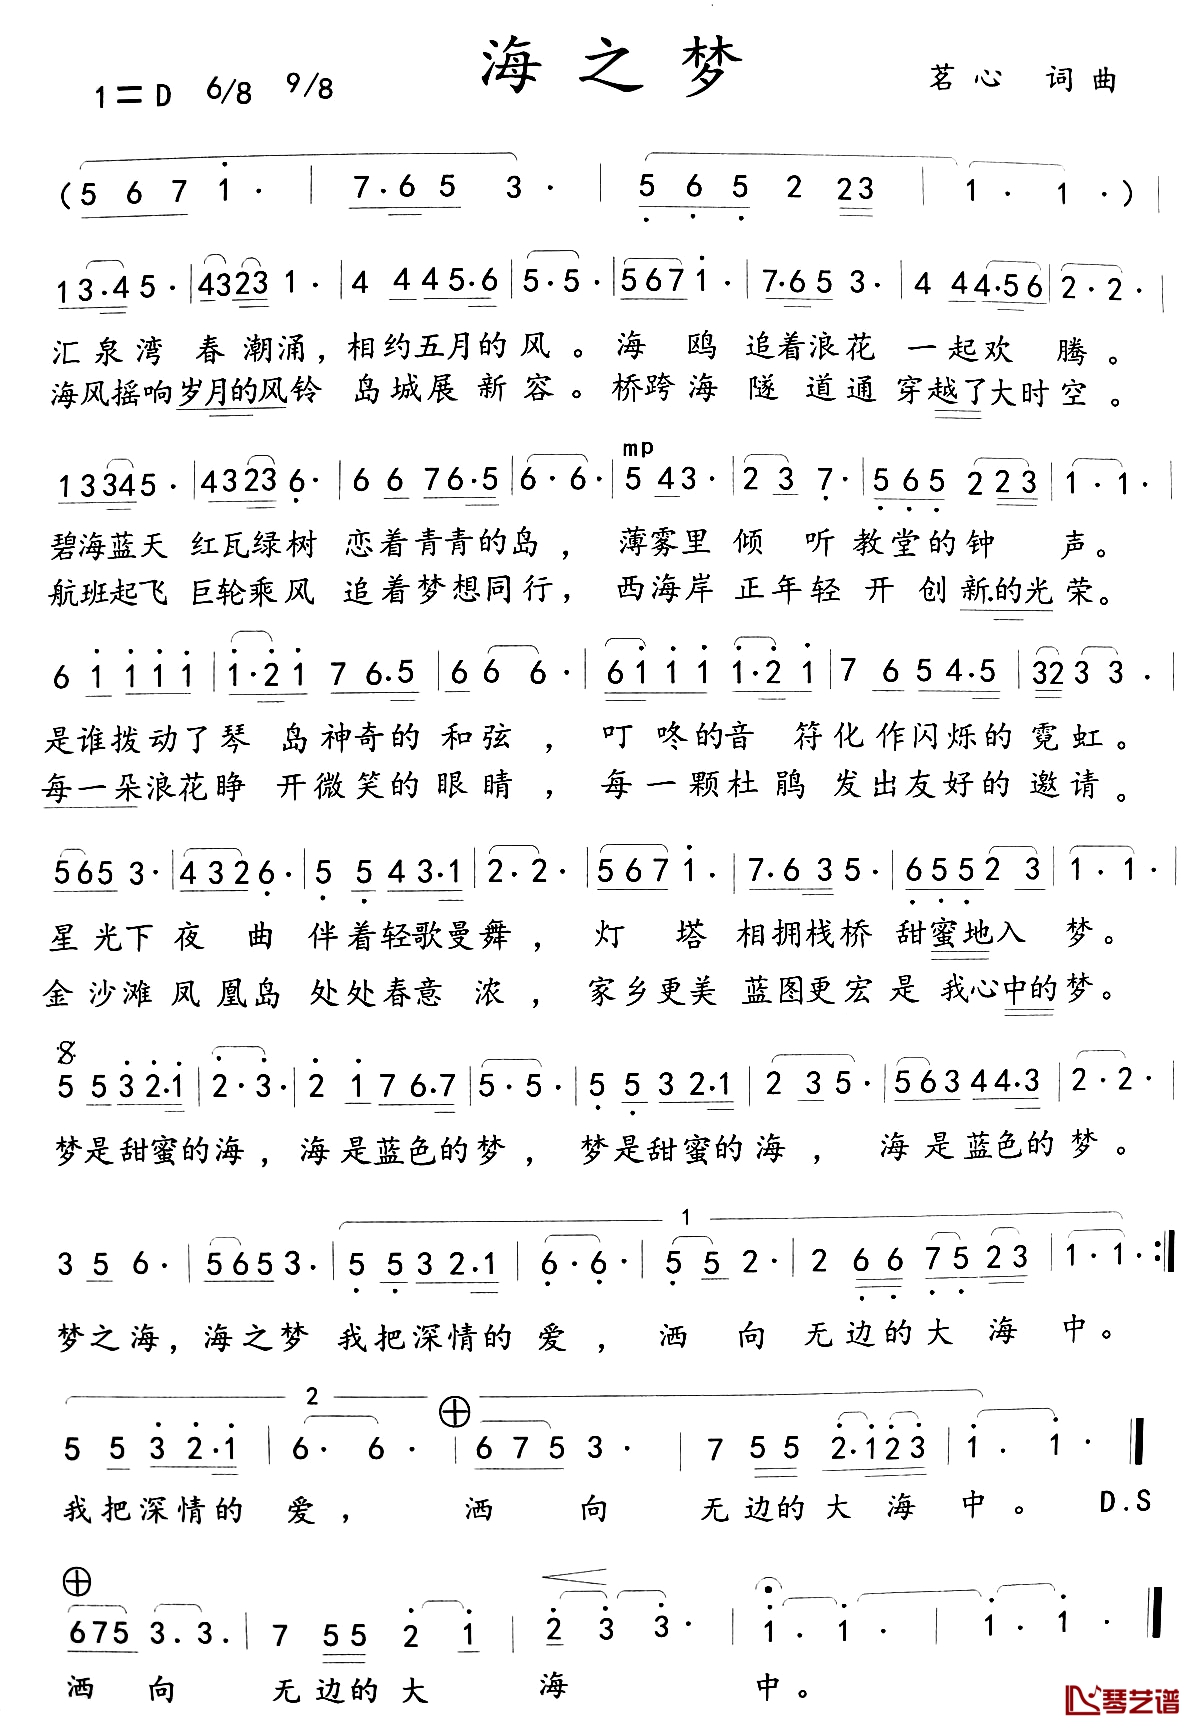 海之梦
1=D 6/8 9/8 茗心 词曲
(5 6 7 1· | 7·6 5 3· | 5 6 5 2 23 | 1· 1·) |
13·45· | 4323 1· | 4 4 45·6 | 5·5· | 5671· | 7·653· | 4 44·56 | 2·2· |
汇泉湾 春潮涌，相约五月的风。海 鸥 追着浪花 一起欢 腾。
海风摇响岁月的风铃 岛城展新容。桥跨海隧道通穿越了大时空。
mp
13345· | 4323 6· | 6 6 76·5 | 6·6· | 5 43· | 2 3 7· | 565 2 23 | 1·1· |
碧海蓝天 红瓦绿树 恋着青青的岛，薄雾里倾听教堂的钟 声。
航班起飞 巨轮乘风 追着梦想同行，西海岸正年轻开创新的光荣。
6 1 1 1 1 | 1·21 7 6·5 | 6 6 6· | 6111 1·21 | 7 6 54·5 | 3233· |
是谁拨动了琴 岛神奇的和弦，叮咚的音 符化作闪烁的霓虹。
每一朵浪花睁 开微笑的眼睛，每一颗杜鹃 发出友好的邀请。
5653· | 4326· | 5 5 43·1 | 2·2· | 5671· | 7·635· | 6552 3 | 1·1· |
星光下夜 曲 伴着轻歌曼舞，灯 塔 相拥栈桥 甜蜜地入 梦。
金沙滩凤凰岛 处处春意 浓，家乡更美 蓝图更宏是 我心中的梦。
5 5 32·1 | 2·3· | 2 1 76·7 | 5·5· | 5 5 32·1 | 2 35· | 56344·3 | 2·2· |
梦是甜蜜的海，海是蓝色的梦，梦是甜蜜的海，海是蓝色的梦。
1
3 5 6· | 5653· | 5 5 32·1 | 6·6· | 5 5 2· | 2 6 6 7 5 23 | 1·1· :|
梦之海，海之梦 我把深情的 爱，洒 向 无边的大 海 中。
2
5 5 3 2·1 | 6· 6· | 6753· | 7 55 2·123 | 1· 1· |
我把深情的 爱，洒 向 无边的大 海 中。D.S
675 3.3. | 7 55 2 1 | 2 3 3· | 1· 1· | 1 1· |
洒 向 无边的大 海 中。
琴艺谱